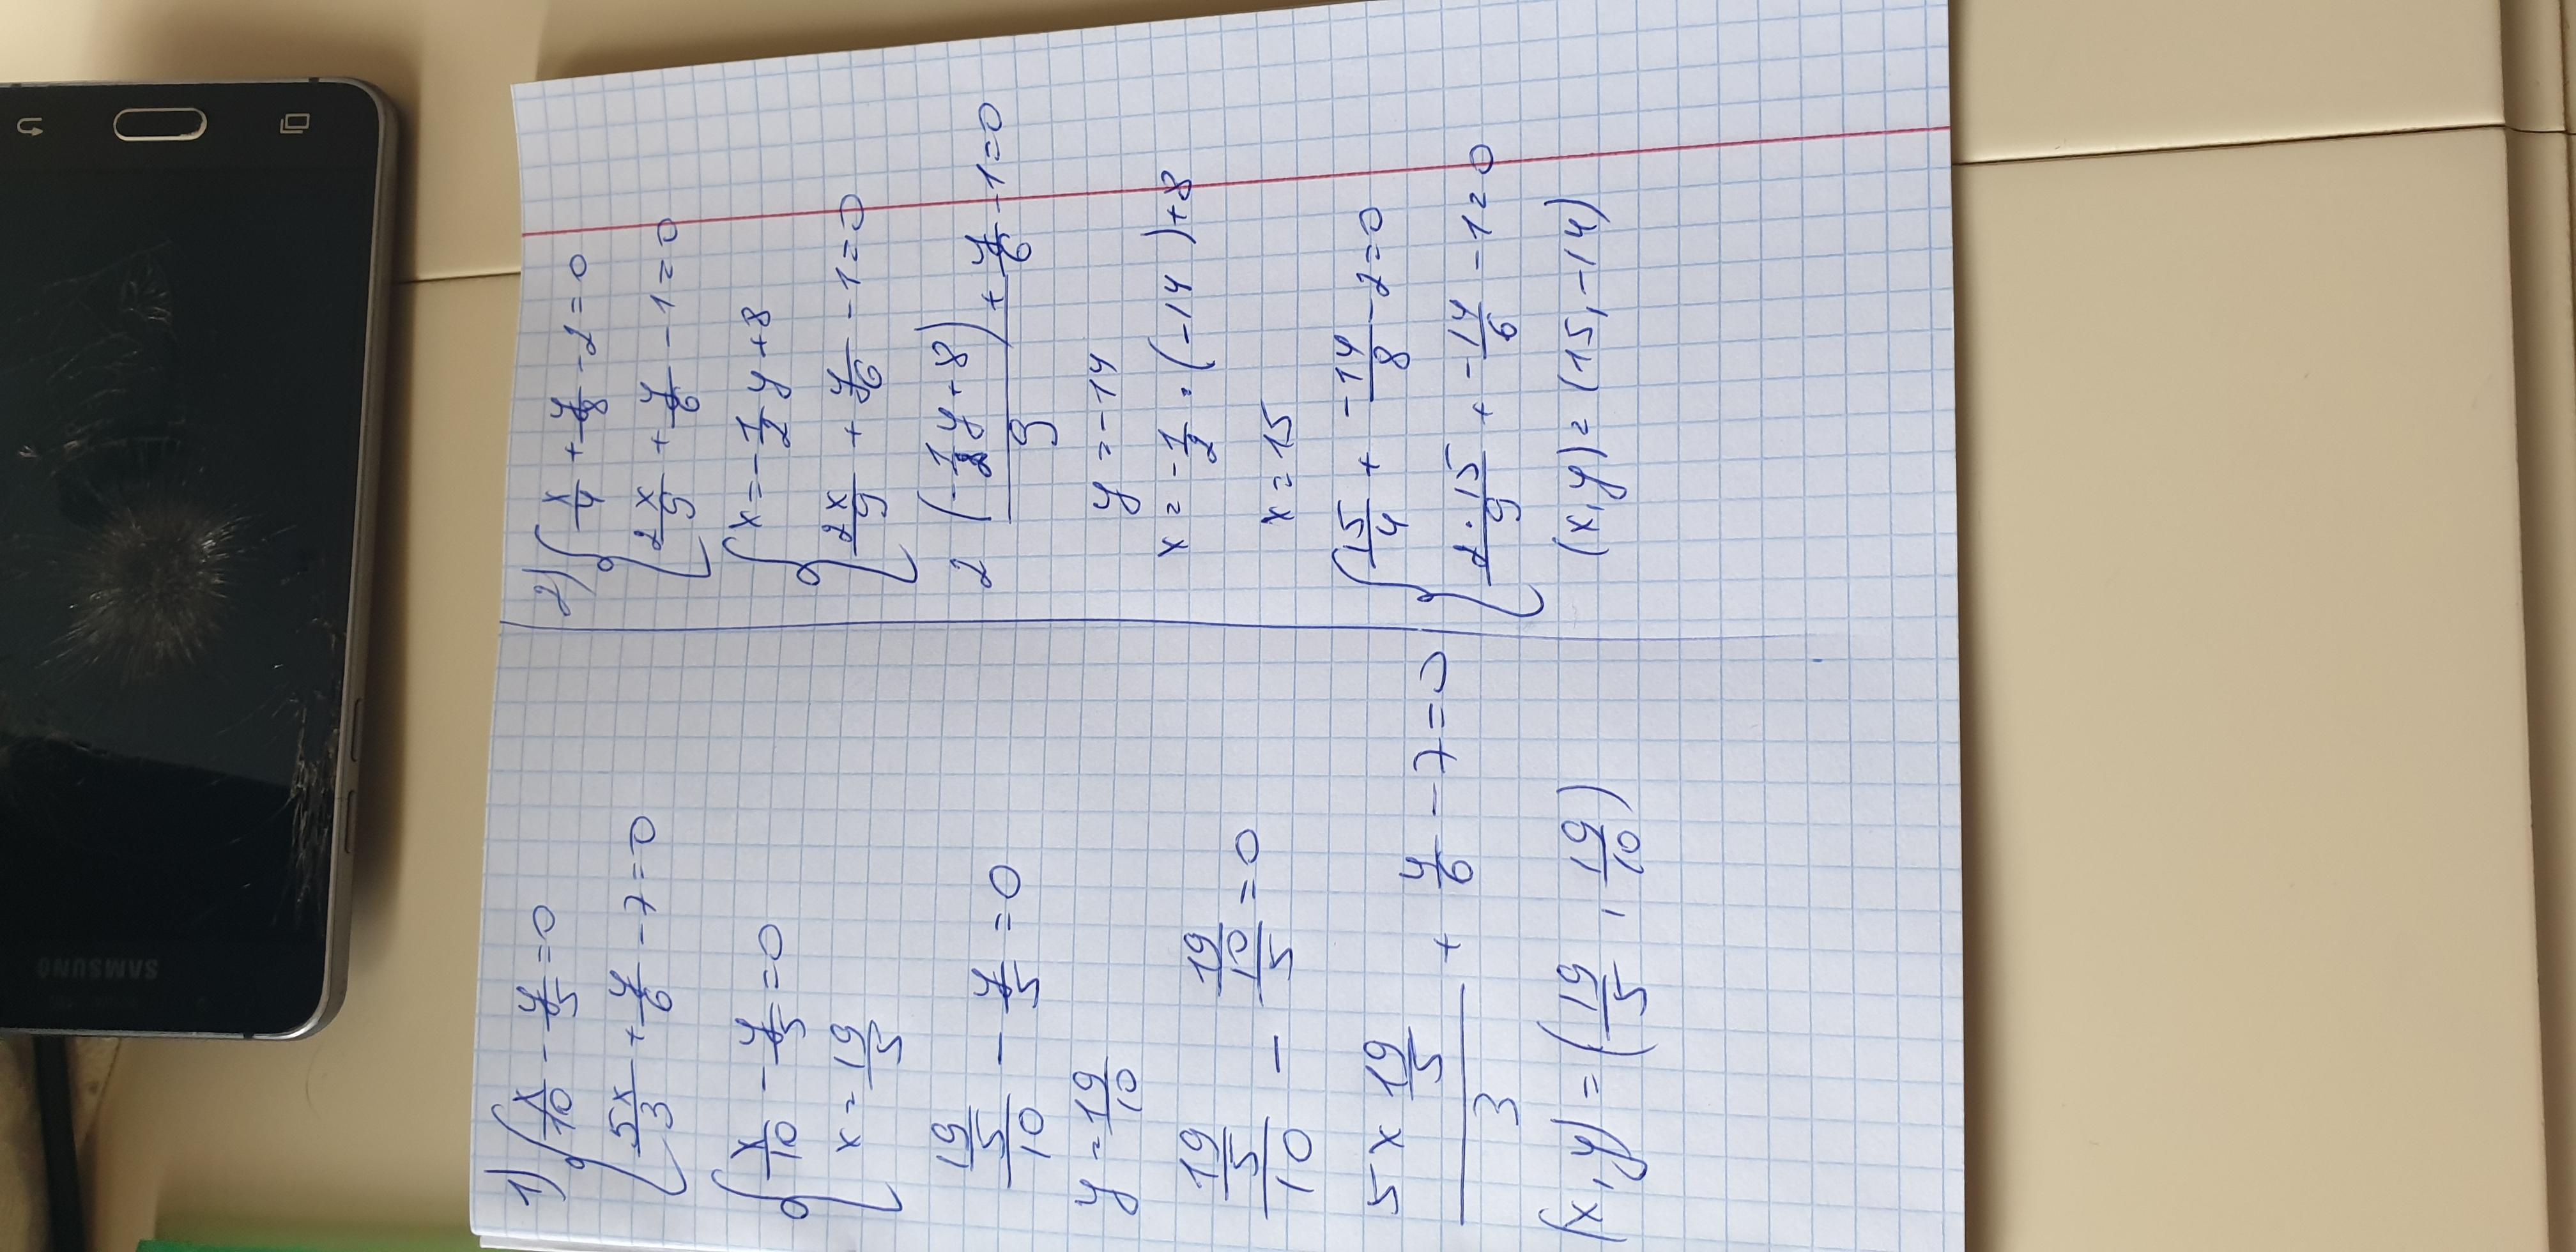 1) { x/10 - y/5 = 0
5x/3 + y/6 - 7 = 0
{ x/10 - y/5 = 0
x = 19/5
19/5/10 - y/5 = 0
y = 19/10
19/5/10 - 19/10/5 = 0
5 x 19/5/3 + y/6 - 7 = 0
(x, y) = (19/5, 19/10)
2) { x/4 + y/8 - 2 = 0
2x/9 + y/6 - 1 = 0
{ x = -1/2 y + 8
2x/9 + y/6 - 1 = 0
2 (-1/2 y + 8)/9 + y/6 - 1 = 0
y = -14
x = -1/2 · (-14) + 8
x = 15
{ 15/4 + -14/8 - 2 = 0
2·15/9 + -14/6 - 1 = 0
(x, y) = (15, -14)
SAMSUNG